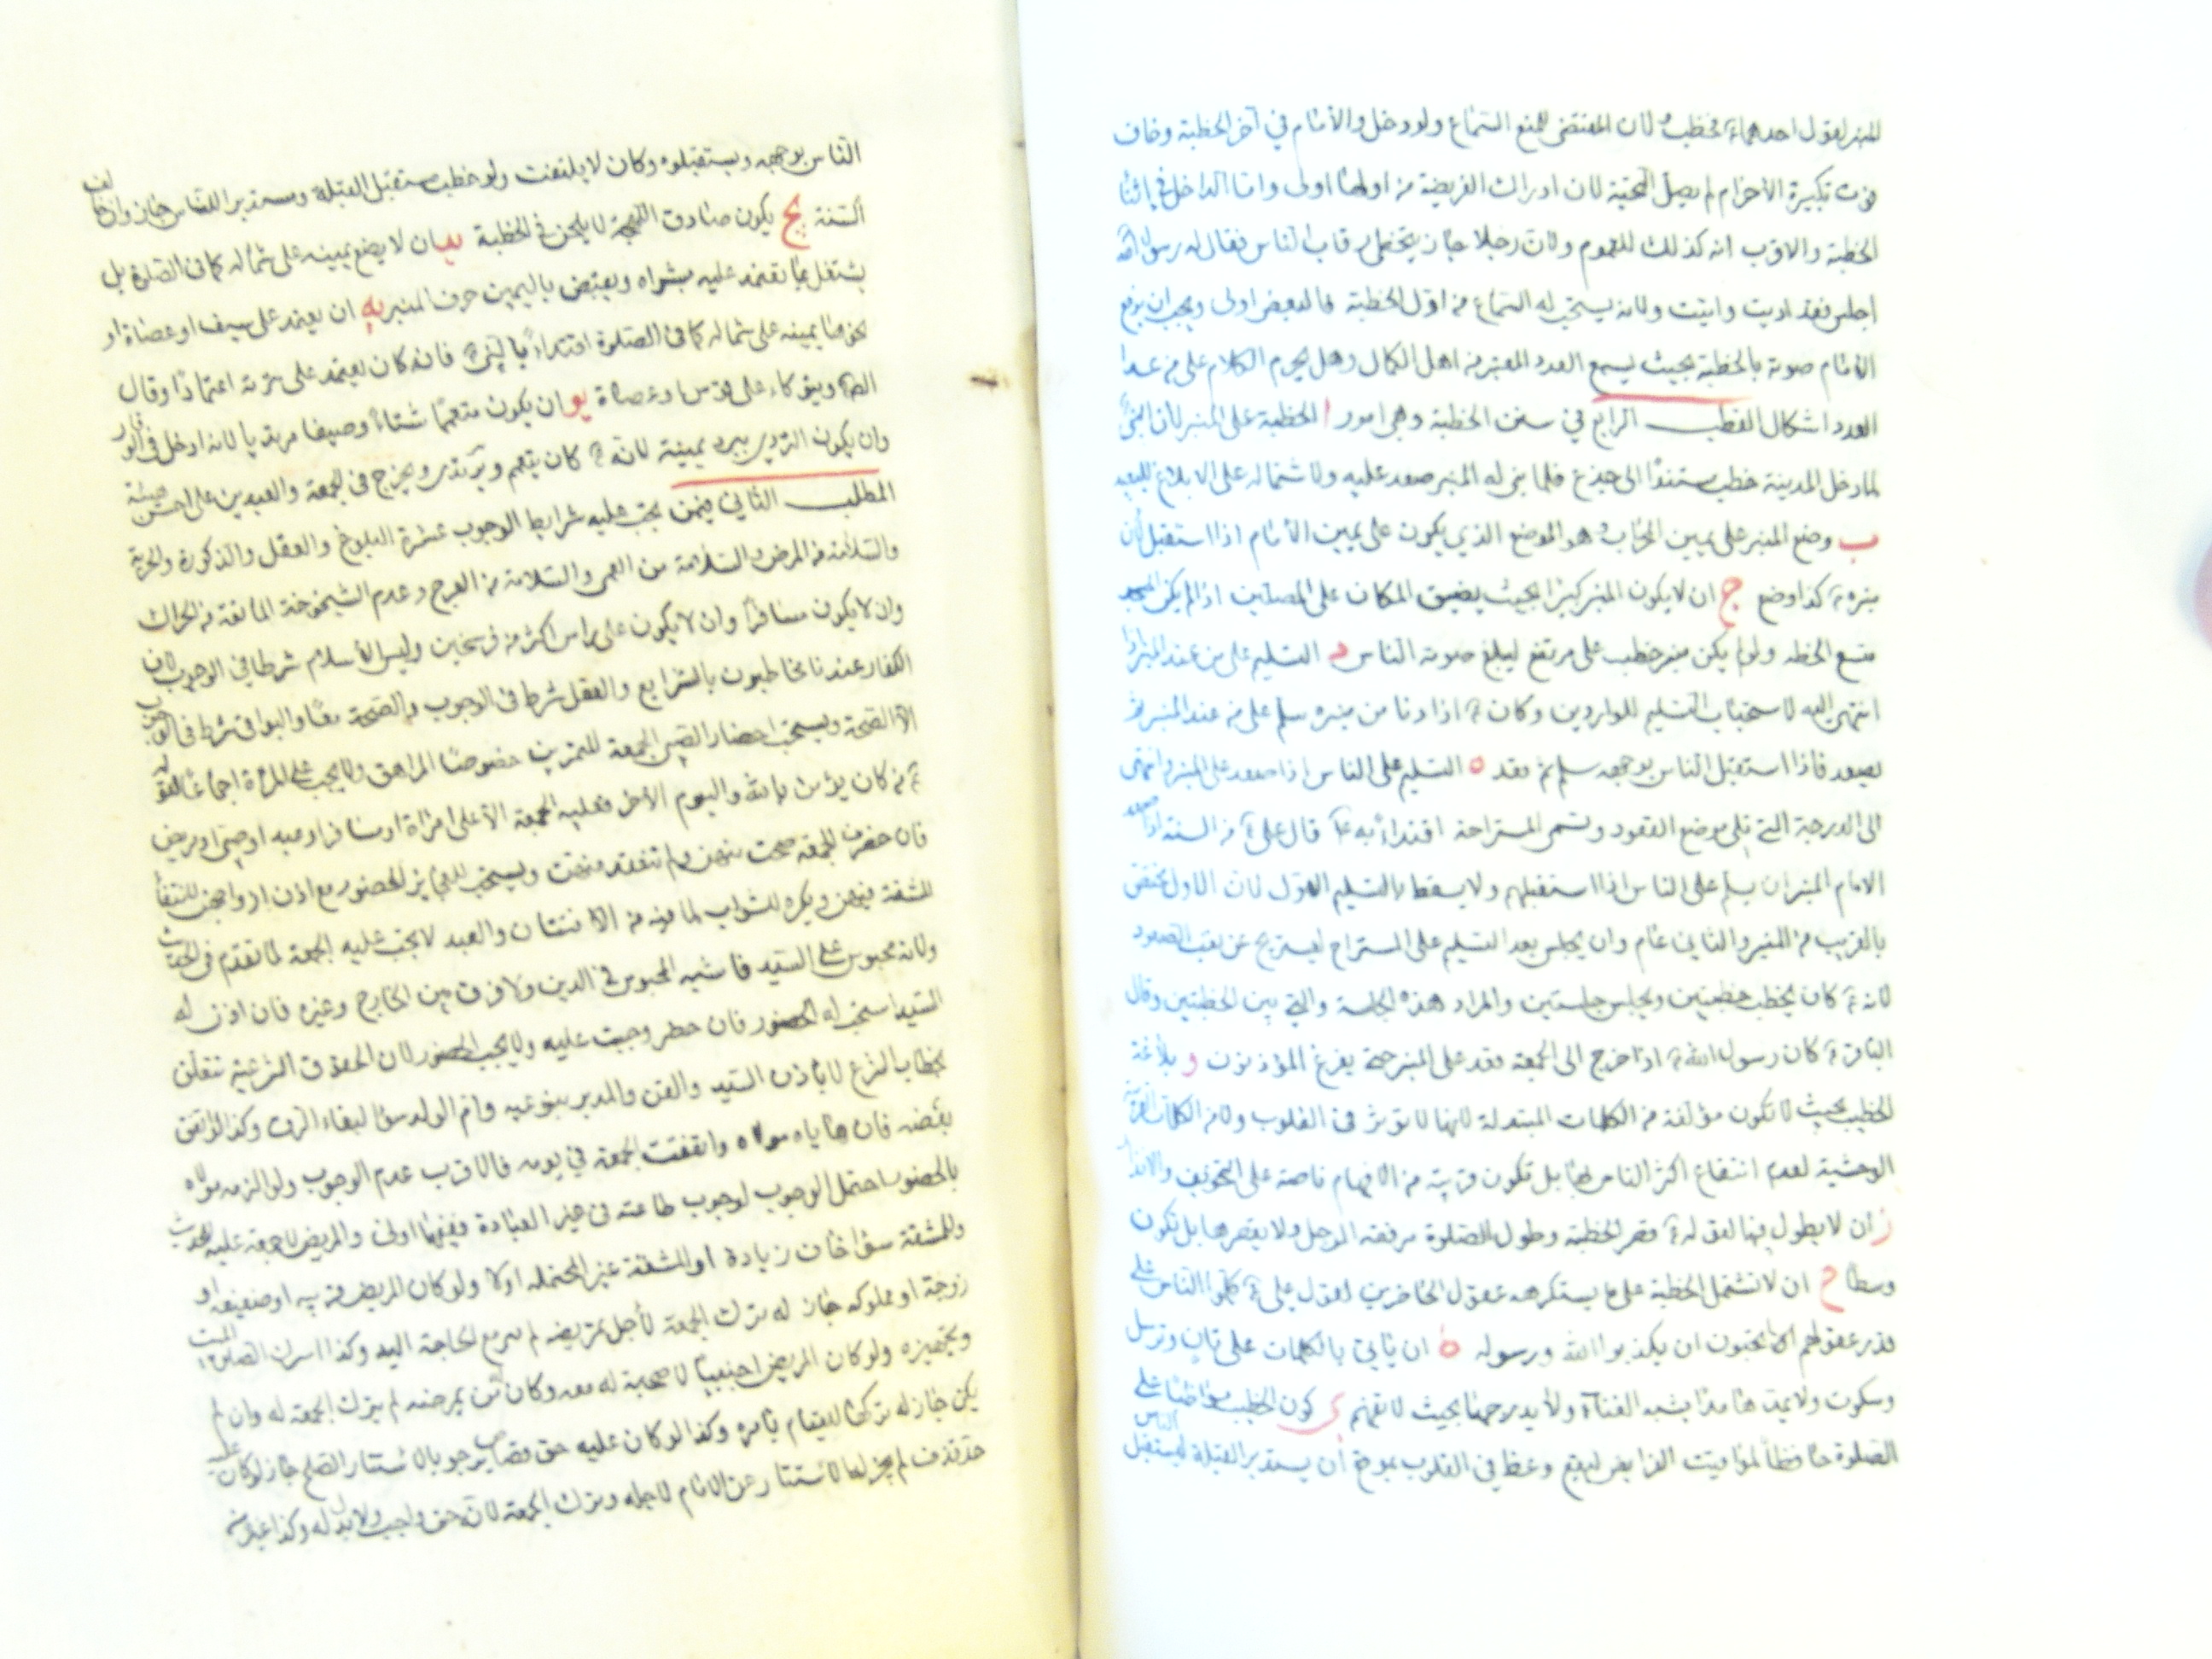 المنبر لقول احدهما ع يخطب لان المقتضى للمنع السماع ولو دخل والامام في آخر الخطبة وخاف
فوت تكبيرة الاحرام لم يصل التحية لان ادراك الفريضة من اولها اولى واما الداخل في اثناء
الخطبة والاقرب انه كذلك للعموم ولان رجلا جاز يتخطى رقاب الناس فقال له رسول الله
اجلس فقد اذيت وانيت ولانه يستحب له السماع من اول الخطبة فالبعض اولى ويجب ان يرفع
الامام صوته بالخطبة بحيث يسمع العدد المعتبر من اهل الكمال وهل يحرم الكلام على من عدا
العدد اشكال المطلب الرابع في سنن الخطبة وهي امور ا الخطبة على المنبر لان النبي
لما دخل المدينة خطب مستندا الى جذع فلما بني له المنبر صعد عليه ولاشتماله على الابلاغ للبعيد
ب وضع المنبر على يمين المحراب وهو الموضع الذي يكون على يمين الامام اذا استقبل لان
منبره كذا وضع ج ان لا يكون المنبر كبيرا بحيث يضيق المكان على المصلين اذا لم يكن المسجد
متسع الخطه ولو لم يكن منبر خطب على مرتفع ليبلغ صوته الناس د التسليم على من عند المنبر اذا
انتهى اليه لاستحباب التسليم للواردين وكان اذا دنا من منبره سلم على من عند المنبر ثم
يصعد فاذا استقبل الناس بوجهه سلم ثم قعد ه التسليم على الناس اذا صعد على المنبر وانتهى
الى الدرجة التي تلي موضع القعود وتسمى المستراحة اقتداء به قال علي من السنة اذا صعد
الامام المنبر ان يسلم على الناس اذا استقبلهم ولا يسقط بالتسليم الاول لان الاول يختص
بالقريب من المنبر والثاني عام وان يجلس بعد التسليم على المستراح ليستريح عن تعب الصعود
لانه كان يخطب خطبتين ويجلس جلستين والمراد هذه الجلسة والتي بين الخطبتين وقال
الباقر كان رسول الله اذا خرج الى الجمعة قعد على المنبر حتى يفرغ المؤذنون و بلاغة
الخطيب بحيث لا تكون مؤلفة من الكلمات المبتذلة لانها لا تؤثر في القلوب ولا من الكلمات الغريبة
الوحشية لعدم انتفاع اكثر الناس بها بل تكون قريبة من الافهام ناصة على التخويف والانذار
ز ان لا يطول فيها لقوله قصر الخطبة وطول الصلوة من فقه الرجل ولا يقصرها بل تكون
وسطا ح ان لا تشتمل الخطبة على ما يستكرهه عقول الحاضرين لقول علي كلموا الناس على
قدر عقولهم اتحبون ان يكذبوا الله ورسوله ط ان ياتي بالكلمات على تان وترسل
وسكوت ولا يمدها مدا يشبه الغناء ولا يدرجها بحيث لا تفهم ي كون الخطيب مواظبا على
الصلوة حافظا لمواقيت الفرايض ليقع وعظ في القلوب موقع ان يستدبر القبلة ليستقبل الناس
الناس بوجهه ويستقبلوه وكان لا يلتفت ولو خطب مستقبل القبلة ومستدبر الناس جاز وان خالف
السنة يج يكون صادق اللهجة لا يلحن في الخطبة يد ان لا يضع يمينه على شماله كما في الصلوة بل
يشتغل بما يعتمد عليه يسراه ويقبض باليمين حرف المنبر يه ان يعتمد على سيف او عصاة او
نحوها يمينه على شماله كما في الصلوة اقتداء بالنبي فانه كان يعتمد على عنزته اعتمادا وقال
الص ويتوكاء على قوس او عصاة يو ان يكون متعمما شتاء وصيفا مرتديا لانه ادخل في الوقار
وان يكون التردي ببرد يمنية لانه كان يتعمم ويرتدى ويخرج في الجمعة والعيدين على احسن هيئة
المطلب الثاني فيمن يجب عليه شرايط الوجوب عشرة البلوغ والعقل والذكورة والحرية
والسلامة من المرض والسلامة من العمى والسلامة من العرج وعدم الشيخوخة المانعة من الحراك
وان لا يكون مسافرا وان لا يكون على راس اكثر من فرسخين وليس الاسلام شرطا في الوجوب لان
الكفار عندنا مخاطبون بالشرايع والعقل شرط في الوجوب والصحة معا والبواقي شرط في الوجوب
لا الصحة ويستحب احضار الصبي الجمعة للتمرين خصوصا المراهق ولا يجب على المراة اجماعا لقوله
من كان يؤمن بالله واليوم الاخر فعليه الجمعة الا على امراة او مسافر او عبد او صبي او مريض
فان حضرن الجمعة صحت منهن ولم تنعقد بهن ويستحب للعجايز الحضور مع اذن ازواجهن لانتفاء
المشقة فيهن ويكره للشواب لما فيه من الافتتان والعبد لا يجب عليه الجمعة لما تقدم في الحديث
ولانه محبوس على السيد فاشبه المحبوس في الدين ولا فرق بين الخارج وغيره فان اذن له
السيد استحب له الحضور فان حضر وجبت عليه ولا يجب الحضور لان الحقوق الشرعية تتعلق
بخطاب الشرع لا باذن السيد والقن والمدبر بنوعيه وام الولد سواء لبقاء الرق وكذا لو انعتق
بعضه فان هاياه مولاه واتفقت الجمعة في يومه فالاقرب عدم الوجوب ولو الزمه مولاه
بالحضور احتمل الوجوب لوجوب طاعته في غير العبادة ففيها اولى والمريض لا جمعة عليه للحديث
وللمشقة سواء خاف زيادة او المشقة غير المحتملة اولا ولو كان المريض قريبه او ضعيفه او
زوجة او مملوكه جاز له ترك الجمعة لاجل تمريضه مع الحاجة اليه وكذا
وتجهيزه ولو كان المريض اجنبيا لا صحبة له معه وكان من يمرضه لم يترك الجمعة له وان لم
يكن جاز له تركها للقيام بامره وكذا لو كان عليه حق قصاص يرجو بالاستتار الصلح جاز لو كان عليه
حد قذف لم يجز له الاستتار عن الامام لاجله وترك الجمعة لانه حق واجب ولا بدل له وكذا